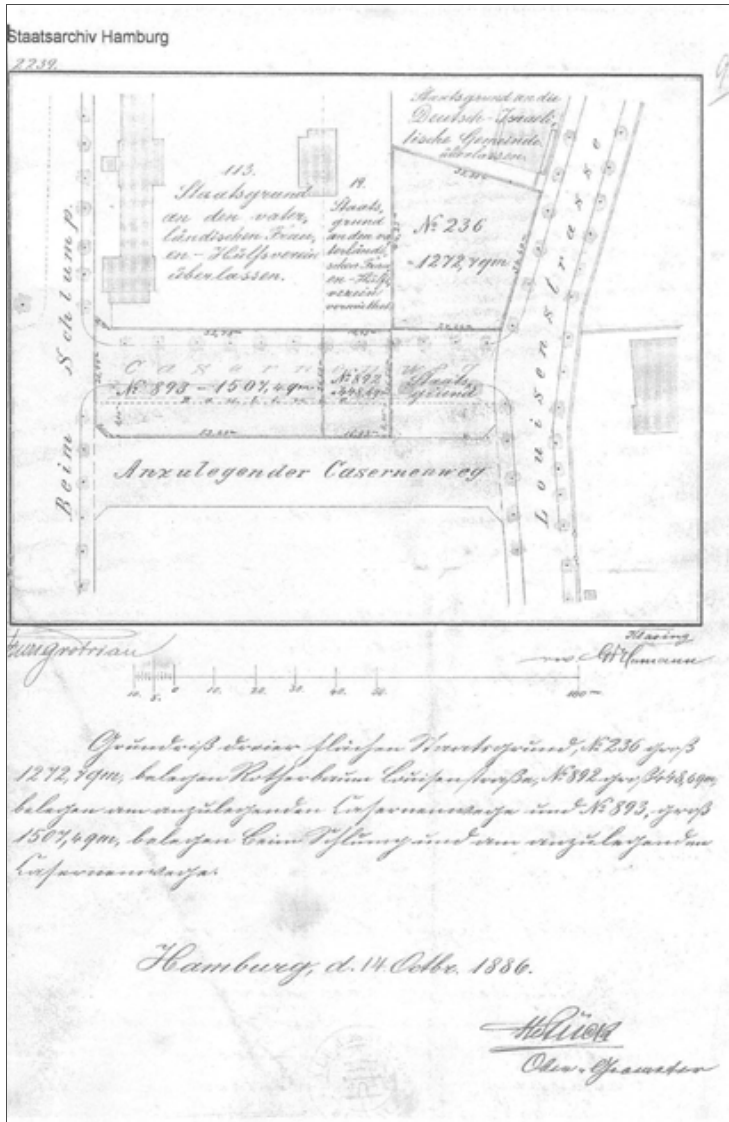 Staatsarchiv Hamburg
2239.
Staatsgrund an die
Deutsch-Israeli,
tische Gemeinde
überlassen.
113.
Staatsgrund
an den vater,
ländischen Frau,
en-Hülfsverein
überlassen.
19.
Staats,
grund
an den va
terländi,
schen Frau
en-Hülfs,
verein
vermiethet
№ 236
1272,7qm
Beim Schlump.
Louisenstrasse
№ 893 - 1507,4qm
№ 892
448,6qm
Staats,
grund
Anzulegender Casernenweg
Grotrian
10. 5. 0 10. 20. 30. 40. 50. 100m
Grundriß dreier Flächen Staatsgrund, № 236 groß
1272,7qm, belegen Rotherbaum Louisenstraße, № 892 groß 448,6qm,
belegen am anzulegenden Casernenwege und № 893, groß
1507,4qm, belegen beim Schlump und am anzulegenden
Casernenwege.
Hamburg, d. 14. Octbr. 1886.
Stück
Ober-Geometer